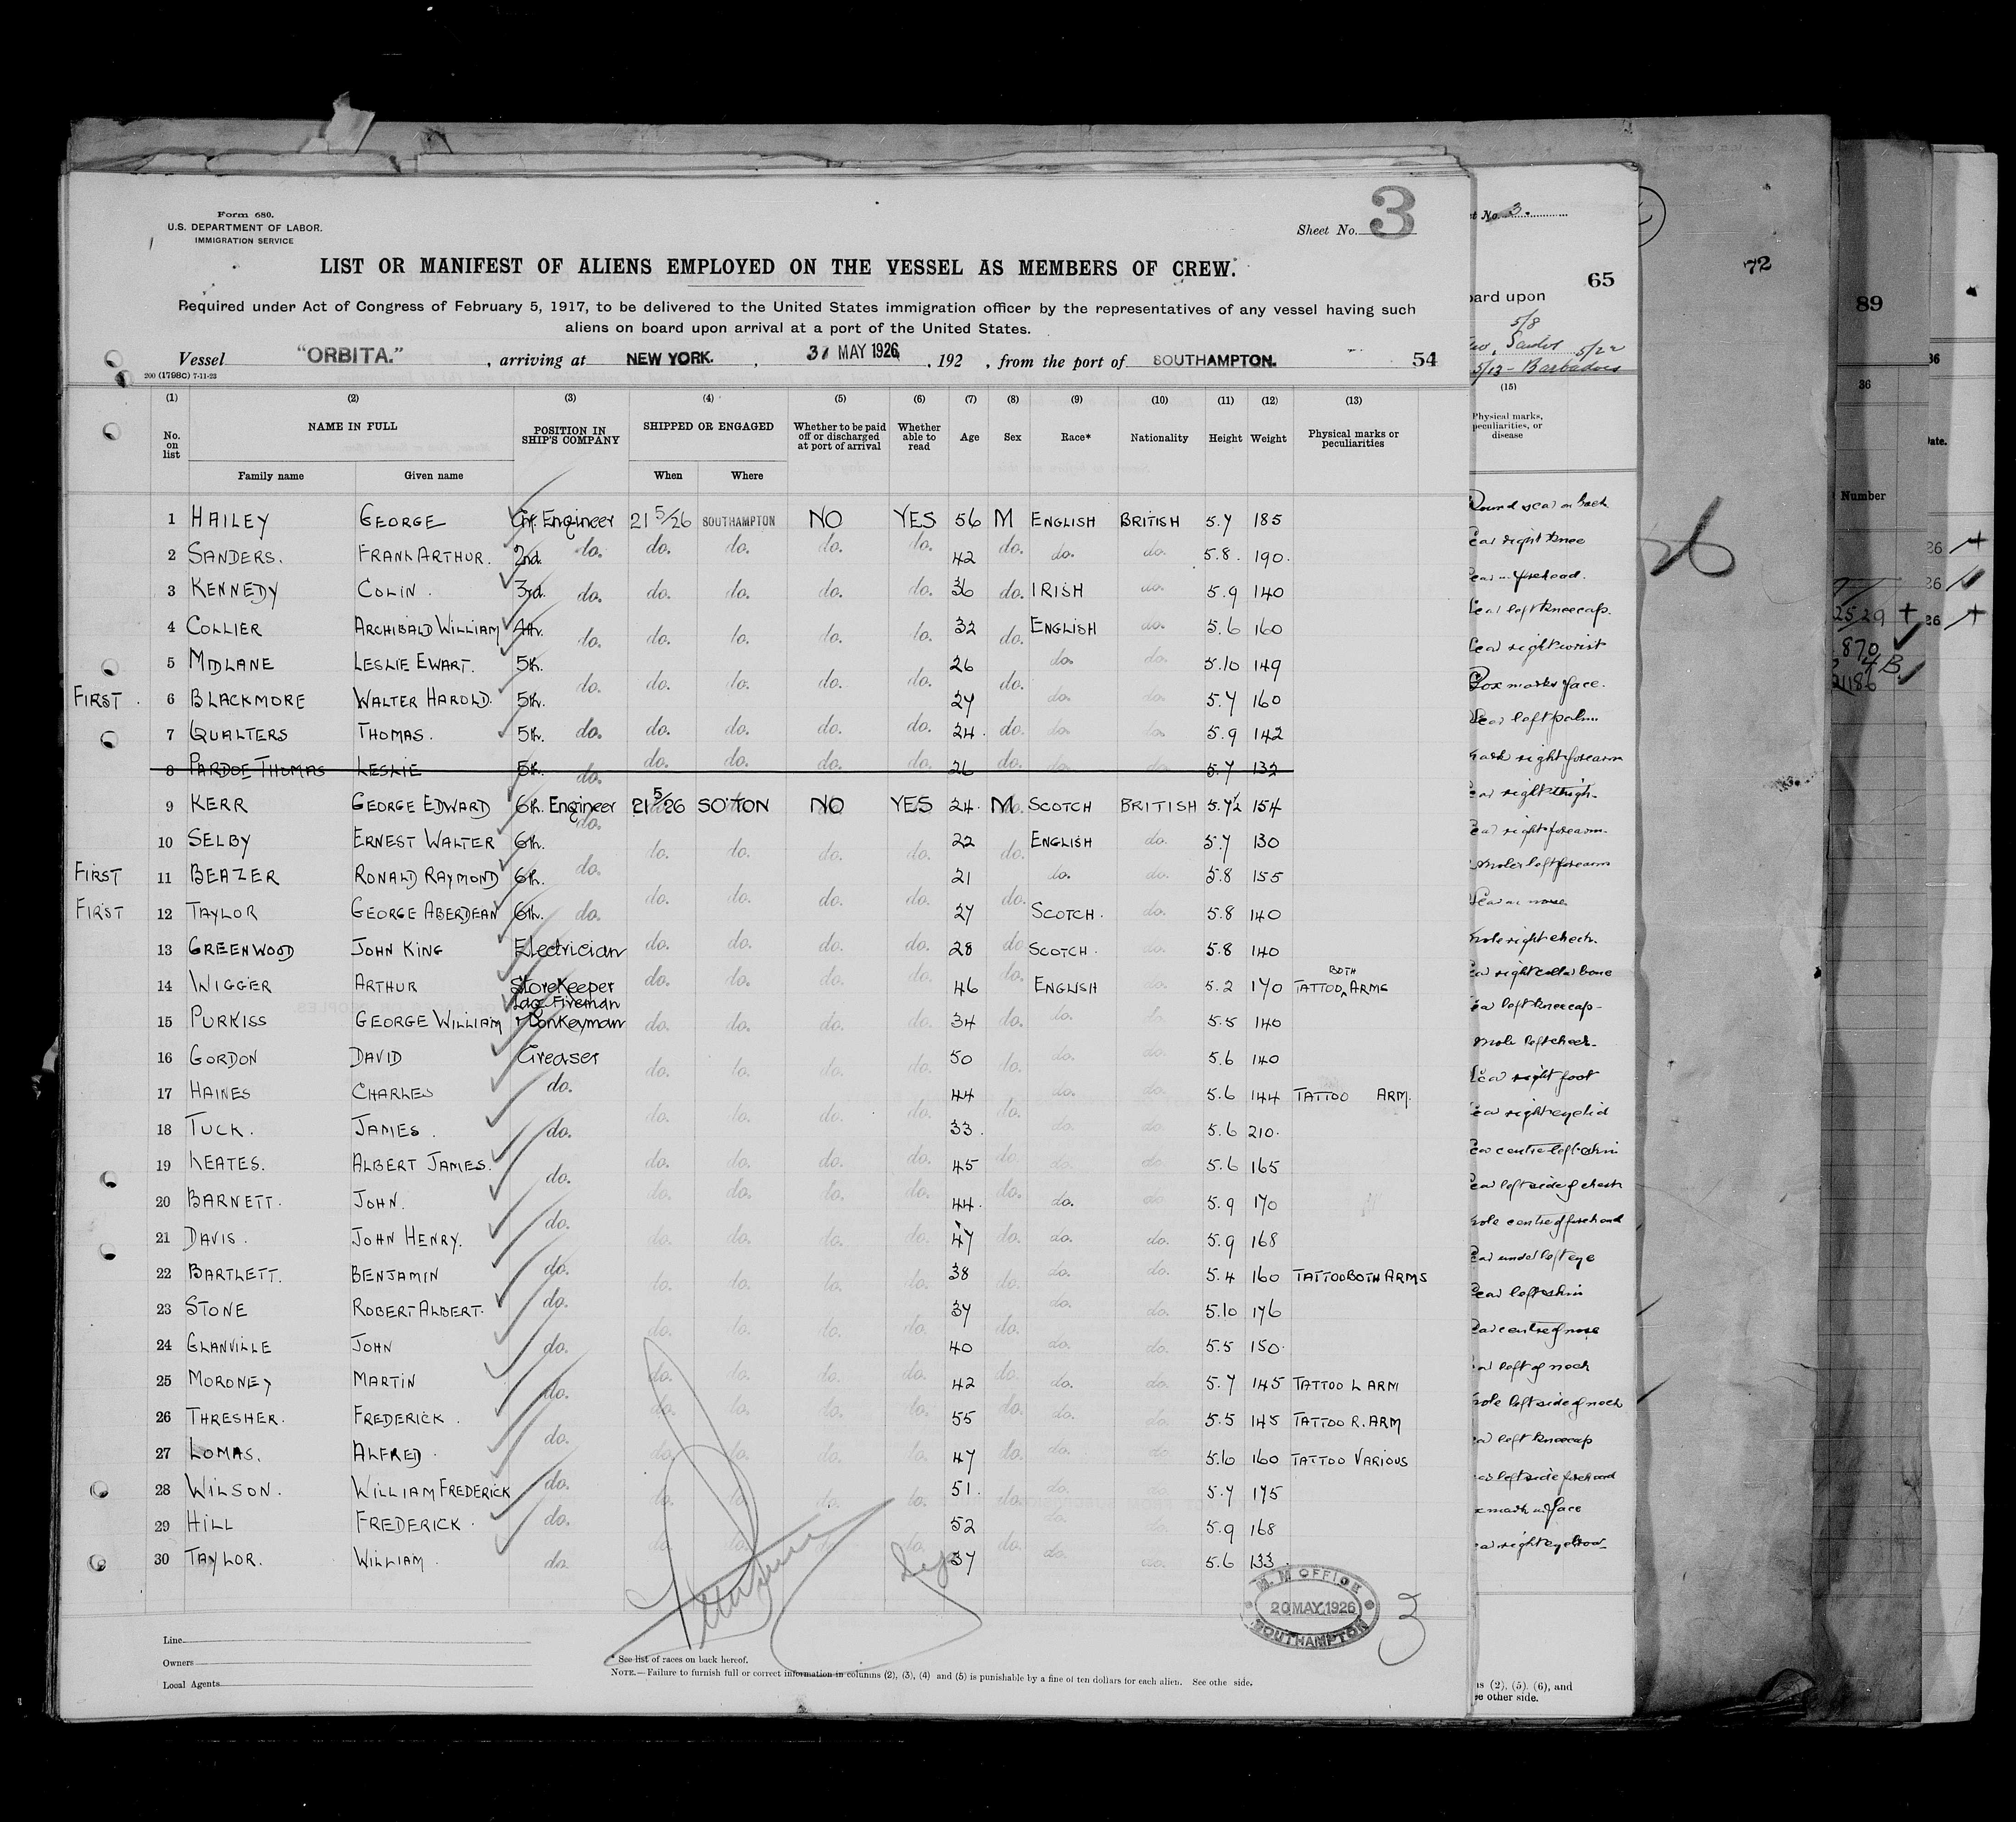 Form 680.
U.S. DEPARTMENT OF LABOR.
IMMIGRATION SERVICE
Sheet No. 3
LIST OR MANIFEST OF ALIENS EMPLOYED ON THE VESSEL AS MEMBERS OF CREW.
Required under Act of Congress of February 5, 1917, to be delivered to the United States immigration officer by the representatives of any vessel having such
aliens on board upon arrival at a port of the United States.
Vessel "ORBITA." , arriving at NEW YORK. , 31 MAY 1926 , 192 , from the port of SOUTHAMPTON. 54
200 (1798C) 7-11-23
(1) (2) (3) (4) (5) (6) (7) (8) (9) (10) (11) (12) (13)
No. on list NAME IN FULL POSITION IN SHIP'S COMPANY SHIPPED OR ENGAGED Whether to be paid off or discharged at port of arrival Whether able to read Age Sex Race* Nationality Height Weight Physical marks or peculiarities
Family name Given name When Where
1 HAILEY GEORGE Engineer 21 5/26 SOUTHAMPTON NO YES 56 M ENGLISH BRITISH 5.7 185
2 SANDERS. FRANK ARTHUR. 2nd. do. do. do. do. do. 42 do. do. do. 5.8. 190.
3 KENNEDY COLIN. 3rd. do. do. do. do. do. 36 do. IRISH do. 5.9 140
4 COLLIER ARCHIBALD WILLIAM 4th. do. do. do. do. do. 32 do. ENGLISH do. 5.6 160
5 MIDLANE LESLIE EWART. 5th. do. do. do. do. do. 26 do. do. do. 5.10 149
FIRST. 6 BLACKMORE WALTER HAROLD. 5th. do. do. do. do. 27 do. do. 5.7 160
7 QUALTERS THOMAS. 5th. do. do. do. do. do. 24. do. do. do. 5.9 142
8 PARDOE THOMAS LESLIE 5th. do. do. do. do. do. 26 do. do. do. 5.7 132
9 KERR GEORGE EDWARD 6th. Engineer 21 5/26 SO'TON NO YES 24. M SCOTCH BRITISH 5.7½ 154
10 SELBY ERNEST WALTER 6th. do. do. do. do. do. 22 do. ENGLISH do. 5.7 130
FIRST 11 BEAZER RONALD RAYMOND 6th. do. 21 do. do. 5.8 155
FIRST 12 TAYLOR GEORGE ABERDEAN 6th. do. do. do. do. do. 27 do. SCOTCH. do. 5.8 140
13 GREENWOOD JOHN KING Electrician do. do. do. do. 28 do. SCOTCH. do. 5.8 140
14 WIGGER ARTHUR Storekeeper do. do. do. do. 46 do. ENGLISH do. 5.2 170 TATTOO BOTH ARMS
15 PURKISS GEORGE WILLIAM Ldg. Fireman & Donkeyman do. do. do. do. 34 do. do. do. 5.5 140
16 GORDON DAVID Greaser do. do. do. do. 50 do. do. do. 5.6 140
17 HAINES CHARLES do. 44 do. do. 5.6 144 TATTOO ARM.
18 TUCK. JAMES. do. do. do. do. do. 33. do. do. do. 5.6 210.
19 KEATES. ALBERT JAMES. do. do. do. do. do. 45 do. do. do. 5.6 165
20 BARNETT. JOHN. do. do. do. do. 44. do. do. do. 5.9 170
21 DAVIS. JOHN HENRY. do. do. do. do. do. 47 do. do. do. 5.9 168
22 BARTLETT. BENJAMIN do. do. do. do. do. 38 do. do. do. 5.4 160 TATTOO BOTH ARMS
23 STONE ROBERT ALBERT. do. 37 do. do. 5.10 176
24 GLANVILLE JOHN do. do. do. do. do. 40 do. do. do. 5.5 150.
25 MORONEY MARTIN do. do. do. do. do. 42 do. do. do. 5.7 145 TATTOO L ARM
26 THRESHER. FREDERICK. do. do. do. do. do. 55 do. do. do. 5.5 145 TATTOO R. ARM
27 LOMAS. ALFRED. do. do. do. do. 47 do. do. do. 5.6 160 TATTOO VARIOUS
28 WILSON. WILLIAM FREDERICK do. do. do. do. do. 51. do. do. do. 5.7 175
29 HILL FREDERICK. do. 52 do. do. 5.9 168
30 TAYLOR. WILLIAM. do. do. do. do. do. 37 do. do. do. 5.6 133.
M. M OFFICE
20 MAY 1926
SOUTHAMPTON
3
Line
Owners
Local Agents
* See list of races on back hereof.
NOTE.—Failure to furnish full or correct information in columns (2), (3), (4) and (5) is punishable by a fine of ten dollars for each alien. See othe side.
No. 3.
65
ard upon
5/8
5/22
5/13 - Barbadoes
(15)
Physical marks,
peculiarities, or
disease
Round scar on back
right knee
forehead.
left kneecap.
right wrist
Pox marks face.
left palm
right forearm
right thigh
right forearm
left forearm
nose
mole right cheek.
right collar bone
left kneecap
mole left cheek
right foot
right eyelid
centre left shin
left side of chest
mole centre of forehead
under left eye
left shin
centre of nose
left of neck
mole left side of neck
left kneecap
left side forehead
mark on face
right eyebrow
(2), (5), (6), and
other side.
72
26
89
36
Number
2529
870
4 B
21186
36
ate.
26
26
26